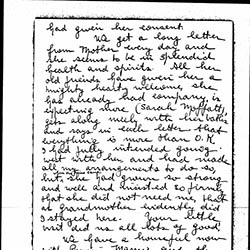 had given her consent.
We get a long letter
from Mother every day and
she seems to be in splendid
health and spirits. All her
old friends have given her a
mighty hearty welcome, she
has already had company is
expecting more (Sarah Moffatt)
gets along nicely with her
and says in each letter that
everything is more than O.K.
I had fully intended going
west with her and had made
all my arrangements to do so,
but, she had grown so strong
and well and insisted so firmly
that she did not need me, that
as grandmother evidently did
I stayed here. Your little
visit did us all lots of good
We have a now